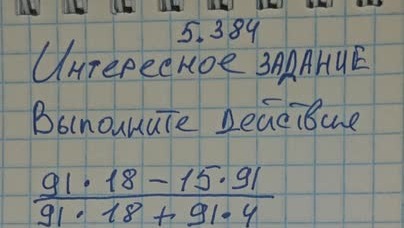 5.384
Интересное ЗАДАНИЕ
Выполните действия
91 · 18 - 15 · 91
91 · 18 + 91 · 4